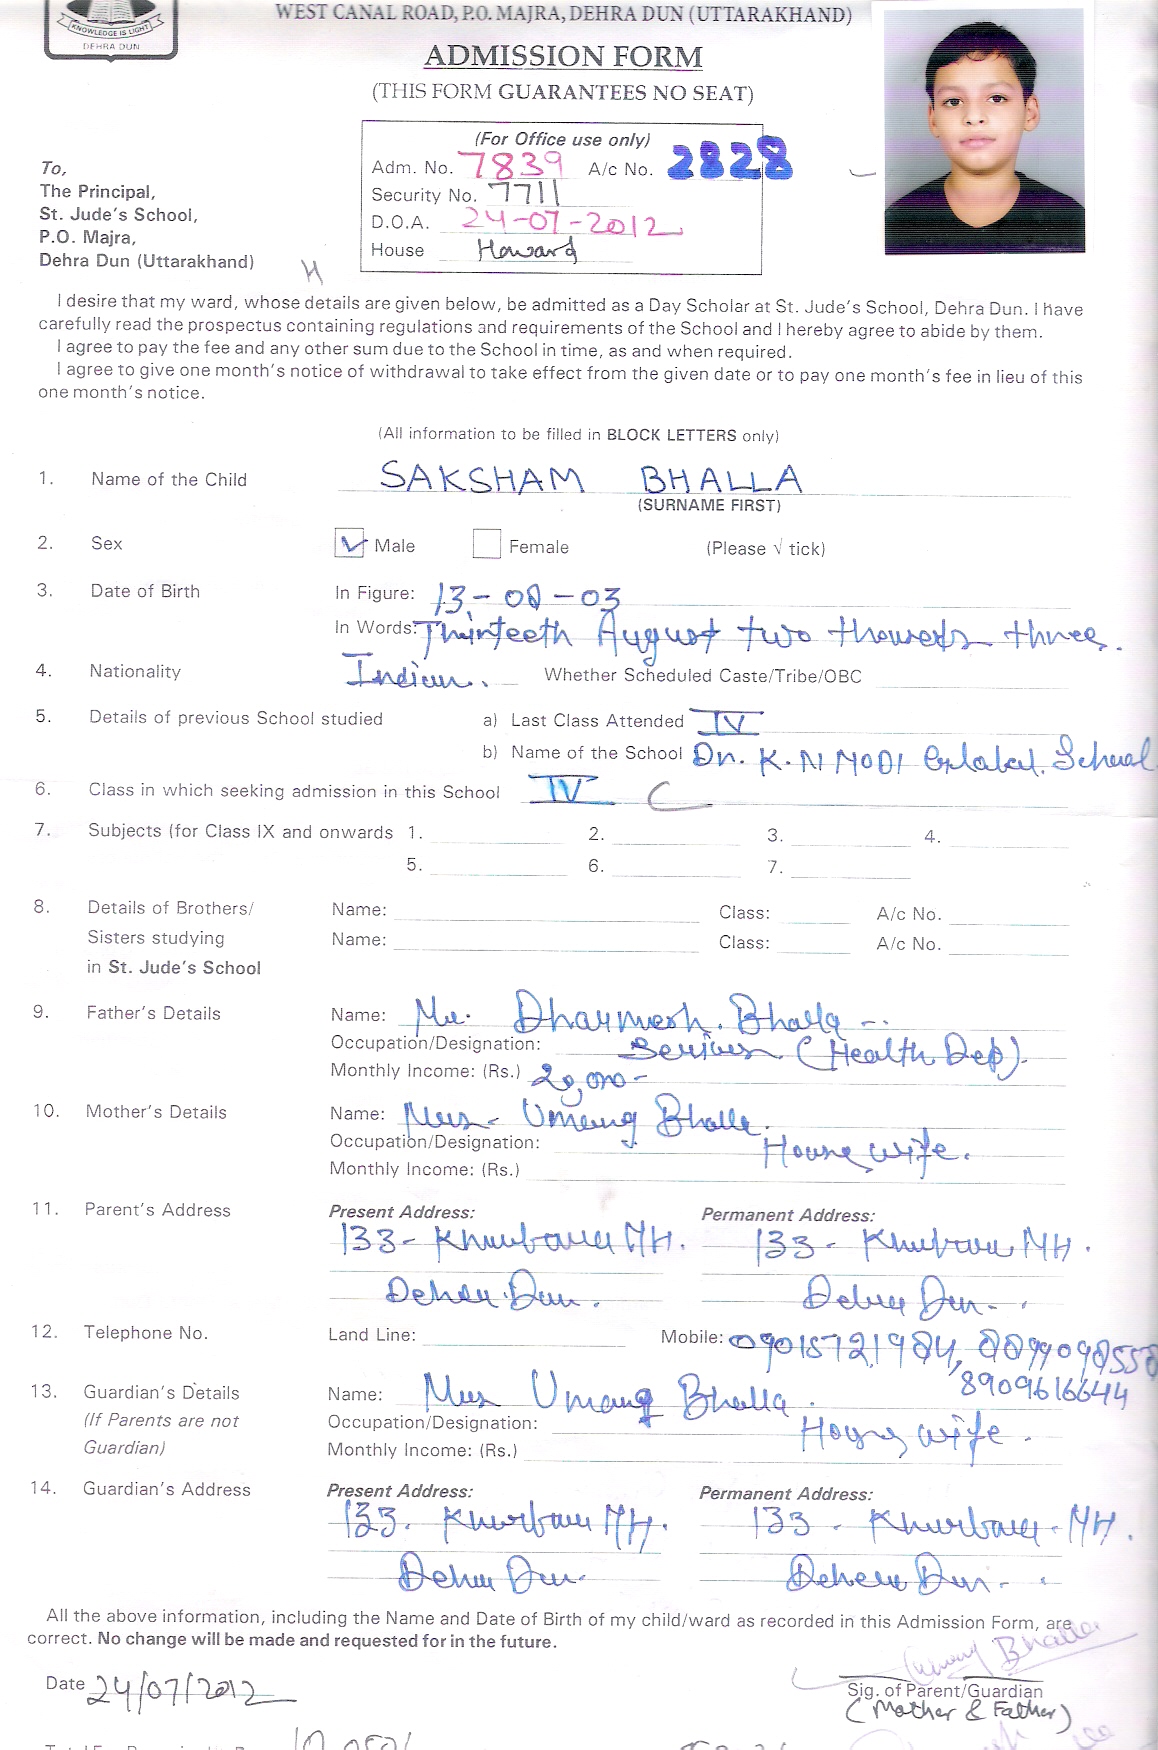 KNOWLEDGE IS LIGHT
DEHRA DUN
WEST CANAL ROAD, P.O. MAJRA, DEHRA DUN (UTTARAKHAND)
ADMISSION FORM
(THIS FORM GUARANTEES NO SEAT)
(For Office use only)
Adm. No. 7839 A/c No. 2828
Security No. 7711
D.O.A. 24-07-2012
House Howard
To,
The Principal,
St. Jude's School,
P.O. Majra,
Dehra Dun (Uttarakhand)
H
I desire that my ward, whose details are given below, be admitted as a Day Scholar at St. Jude's School, Dehra Dun. I have
carefully read the prospectus containing regulations and requirements of the School and I hereby agree to abide by them.
I agree to pay the fee and any other sum due to the School in time, as and when required.
I agree to give one month's notice of withdrawal to take effect from the given date or to pay one month's fee in lieu of this
one month's notice.
(All information to be filled in BLOCK LETTERS only)
1. Name of the Child SAKSHAM BHALLA
(SURNAME FIRST)
2. Sex Male Female (Please √ tick)
3. Date of Birth In Figure: 13-08-03
In Words: Thirteeth August two thousands three.
4. Nationality Indian. Whether Scheduled Caste/Tribe/OBC
5. Details of previous School studied a) Last Class Attended IV
b) Name of the School Dr. K. N MODI Global School
6. Class in which seeking admission in this School IV C
7. Subjects (for Class IX and onwards 1. 2. 3. 4.
5. 6. 7.
8. Details of Brothers/ Name: Class: A/c No.
Sisters studying Name: Class: A/c No.
in St. Jude's School
9. Father's Details Name: Mr. Dharmesh. Bhalla
Occupation/Designation: Services (Health Dep).
Monthly Income: (Rs.) 20,000-
10. Mother's Details Name: Mrs- Umang Bhalla.
Occupation/Designation: House wife.
Monthly Income: (Rs.)
11. Parent's Address Present Address: Permanent Address:
133- Khurbura MH. 133- Khurbura MH.
Dehra Dun. Dehra Dun-
12. Telephone No. Land Line: Mobile: 09015721984,
8909616644
13. Guardian's Details Name: Mrs Umang Bhalla.
(If Parents are not Occupation/Designation: House wife.
Guardian) Monthly Income: (Rs.)
14. Guardian's Address Present Address: Permanent Address:
133. Khurbura MH. 133- Khurbura- MH.
Dehra Dun. Dehra Dun-
All the above information, including the Name and Date of Birth of my child/ward as recorded in this Admission Form, are
correct. No change will be made and requested for in the future.
Umang Bhalla
Date 24/07/2012
Sig. of Parent/Guardian
(Mother & Father)